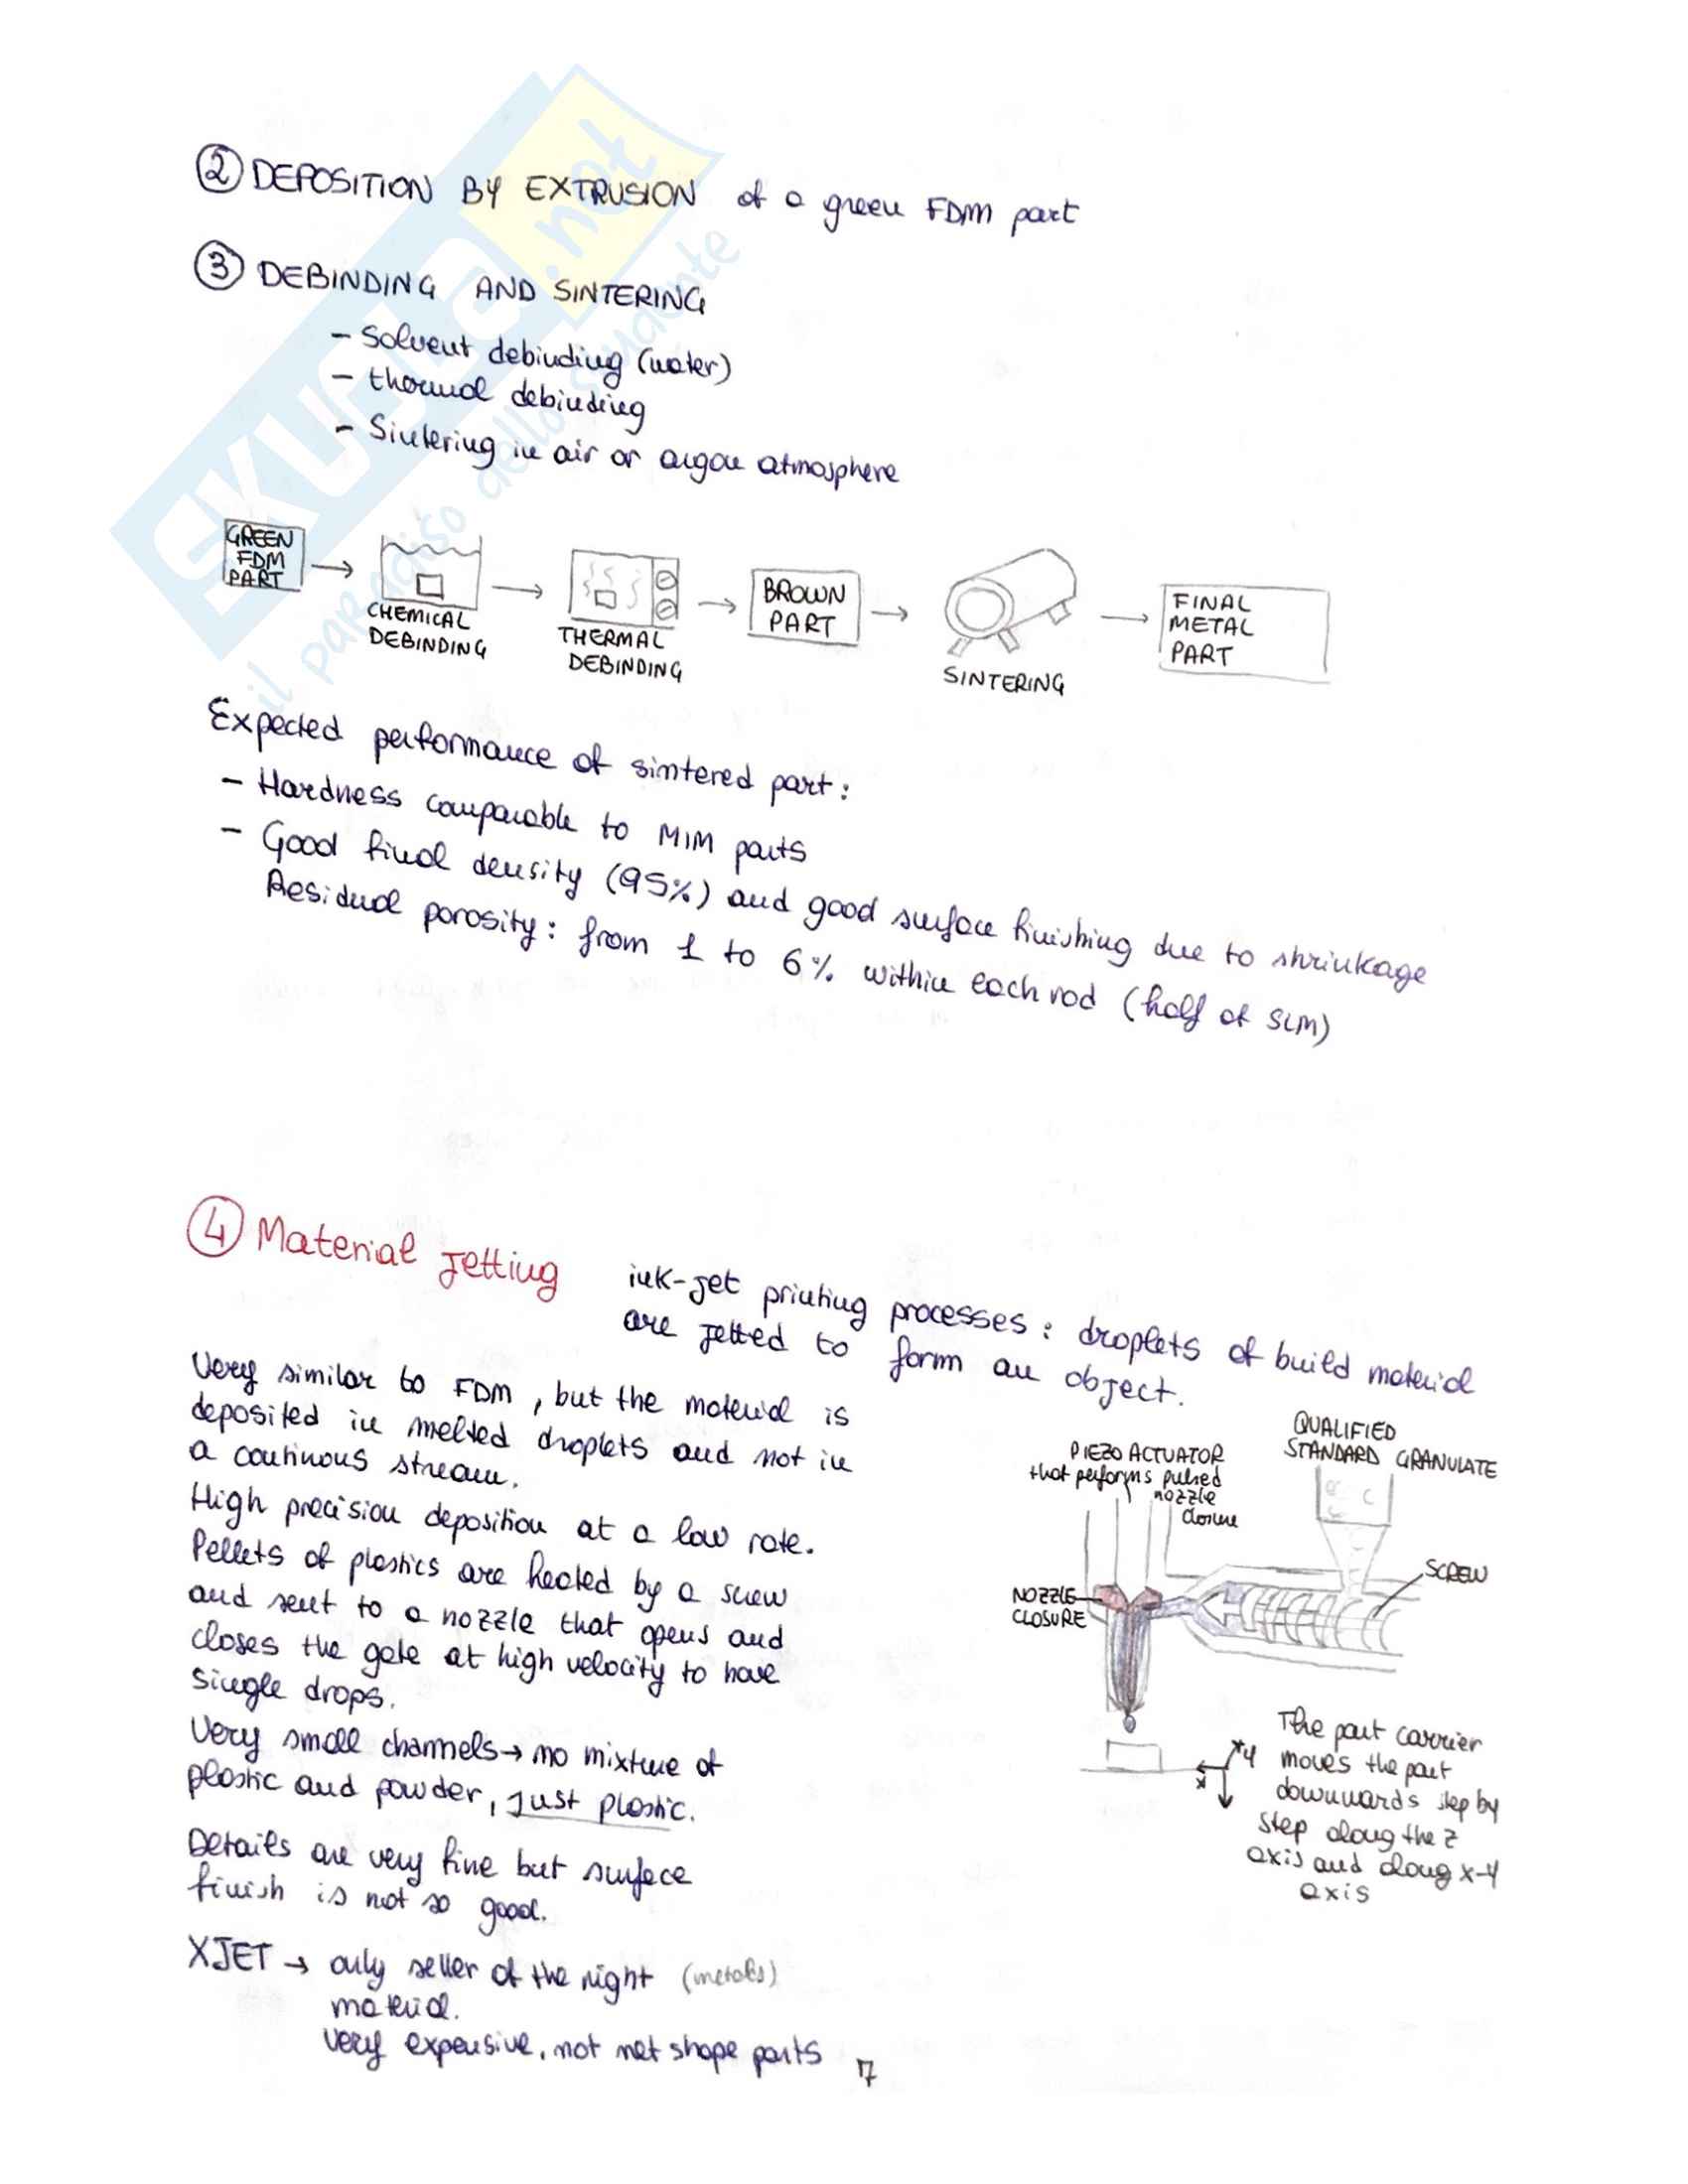 ② DEPOSITION BY EXTRUSION of a green FDM part
③ DEBINDING AND SINTERING
- Solvent debinding (water)
- thermal debinding
- Sintering in air or argon atmosphere
GREEN
FDM
PART
CHEMICAL
DEBINDING
THERMAL
DEBINDING
BROWN
PART
SINTERING
FINAL
METAL
PART
Expected performance of sintered part:
- Hardness comparable to MIM parts
- Good final density (95%) and good surface finishing due to shrinkage
Residual porosity: from 1 to 6% within each rod (half of SLM)
④ Material Jetting
ink-jet printing processes: droplets of build material
are jetted to form an object.
Very similar to FDM, but the material is
deposited in melted droplets and not in
a continuous stream.
High precision deposition at a low rate.
Pellets of plastics are heated by a screw
and sent to a nozzle that opens and
closes the gate at high velocity to have
single drops.
Very small channels → no mixture of
plastic and powder, just plastic.
Details are very fine but surface
finish is not so good.
XJET → only seller of the right (metals)
material.
very expensive, not net shape parts
PIEZO ACTUATOR
that performs pulsed
nozzle
closure
QUALIFIED
STANDARD GRANULATE
SCREW
NOZZLE
CLOSURE
x
y
The part carrier
moves the part
downwards step by
step along the z
axis and along x-y
axis
7
SKUOLA.net
il paradiso dello studente